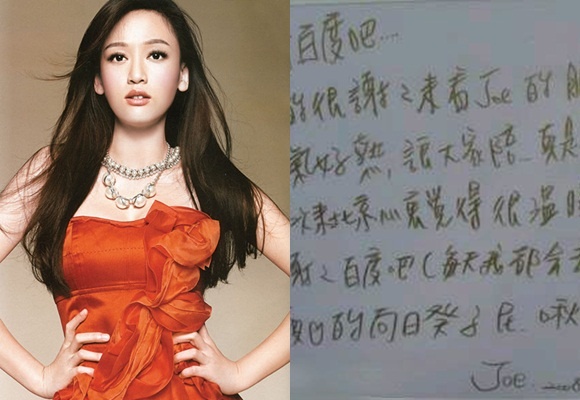 百度吧...
很謝之來看Joe的
氣好熱,讓大家陪..真是
來北京心裏覺得很溫
謝之百度吧(每天我都會去
的向日葵子民.啾
Joe.